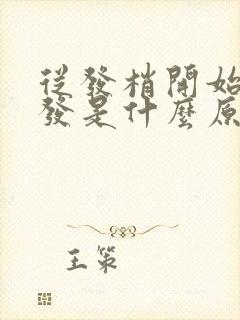 從發梢開始
發是什麼原
王策